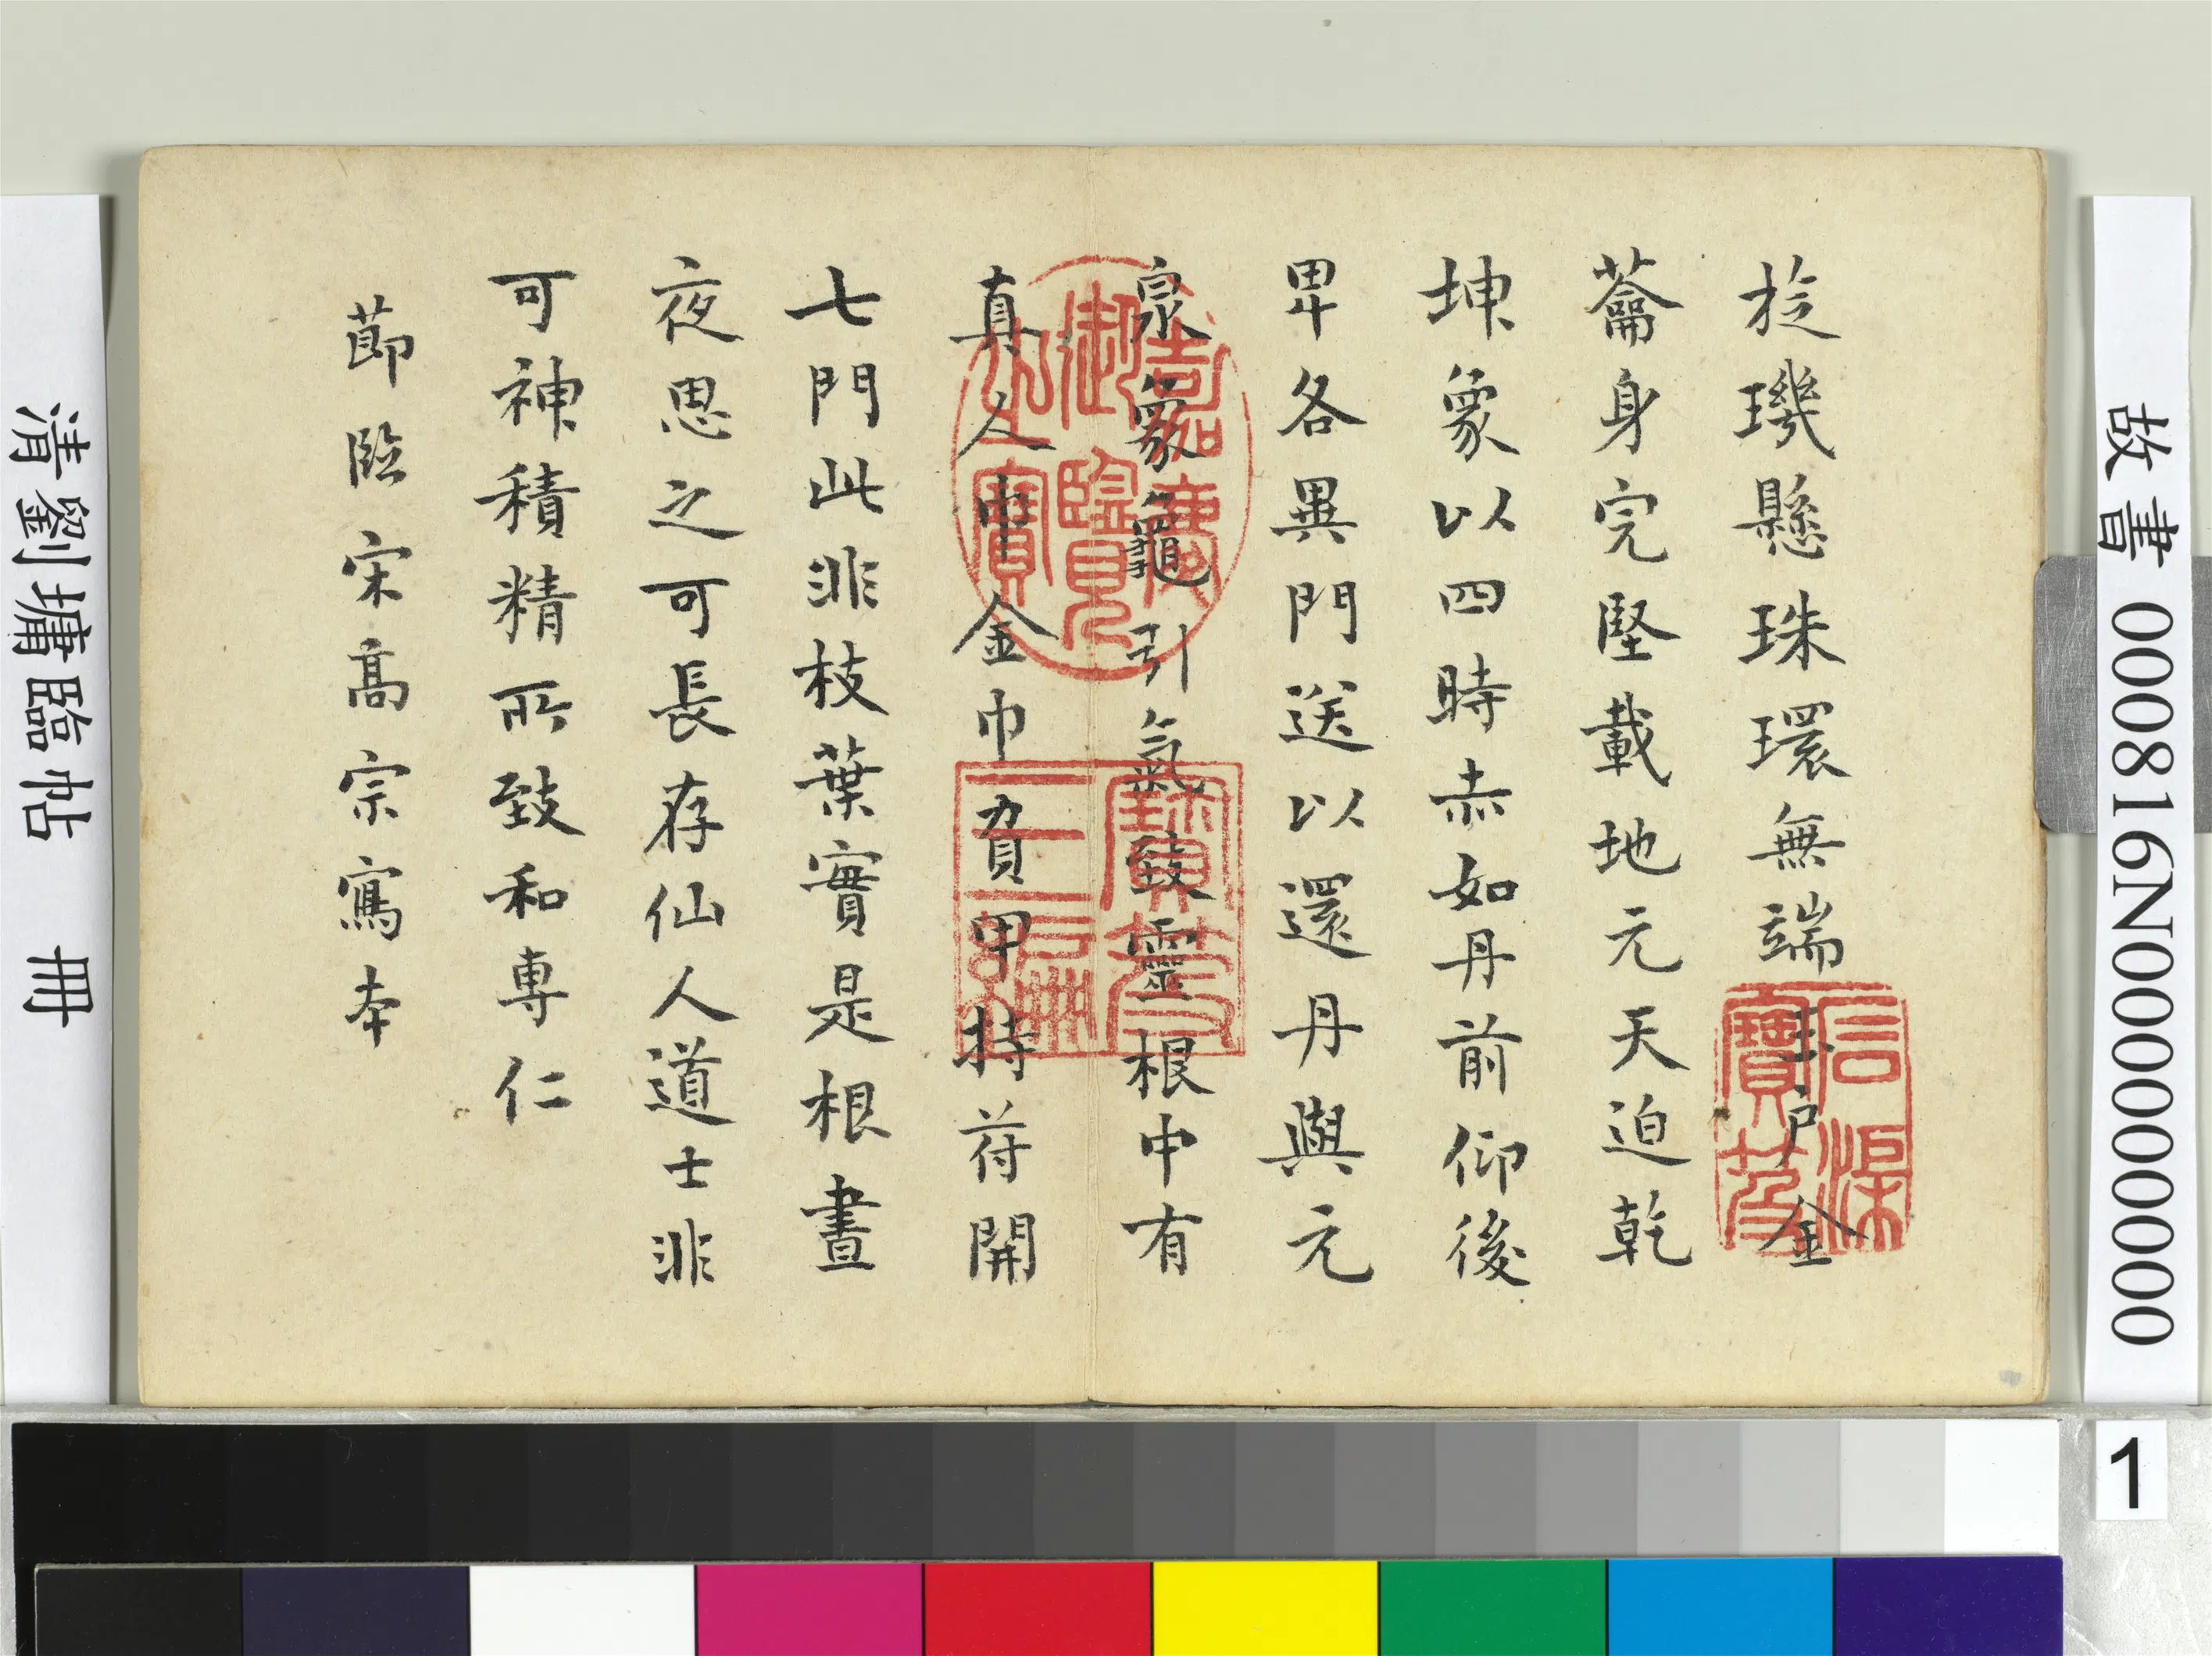 故書000816N000000000
1
㫌璣懸珠環無端玉户金
籥身完堅載地元天迫乾
坤象以四時赤如丹前仰後
卑各異門送以還丹與元
泉象龜引氣致靈根中有
真人巾金巾負甲持苻開
七門此非枝葉實是根晝
夜思之可長存仙人道士非
可神積精所致和専仁
節臨宋髙宗寫本
嘉慶御覽之寶
清劉墉臨帖 冊